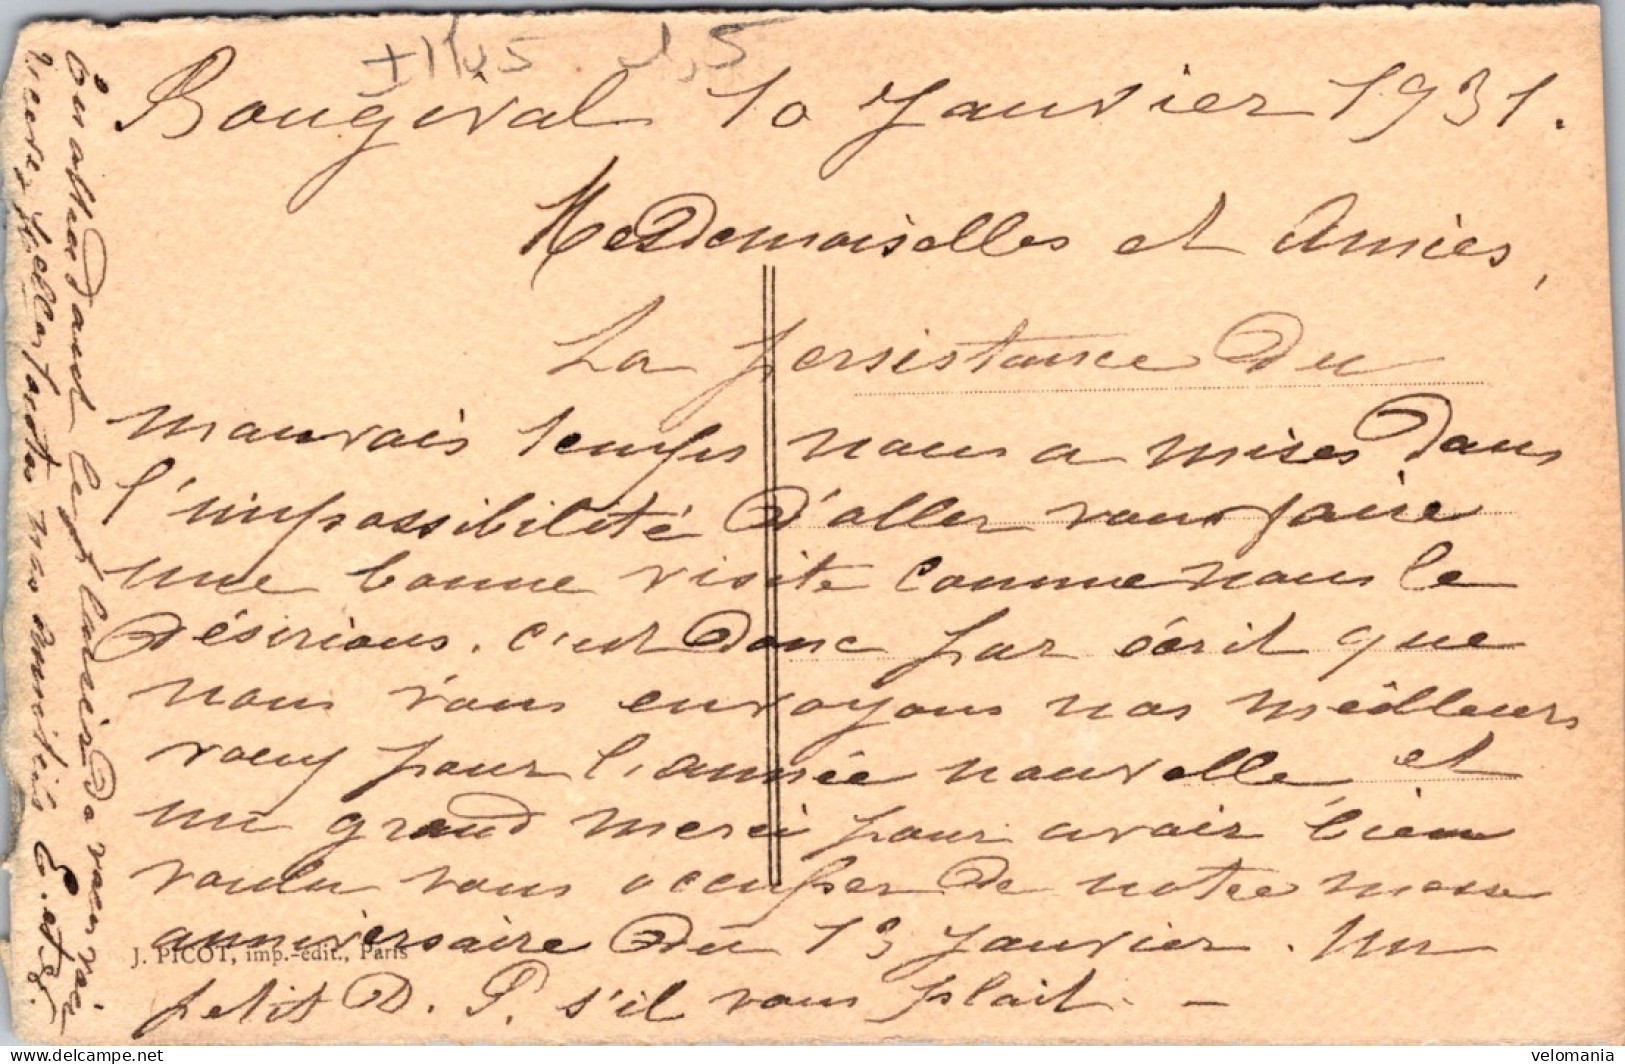 Bougival 10 Janvier 1931.
Mesdemoiselles et Amies,
La persistance du
mauvais temps nous a mises dans
l'impossibilité d'aller vous faire
une bonne visite comme nous le
désirions. c'est donc par écrit que
nous vous envoyons nos meilleurs
voeux pour l'année nouvelle et
un grand merci pour avoir bien
voulu vous occuper de notre messe
anniversaire du 13 Janvier. Un
petit D. P. s'il vous plait. -
J. PICOT, imp.-édit., Paris
En attendant le plaisir de vous voir
nos amitiés E. et
velomania